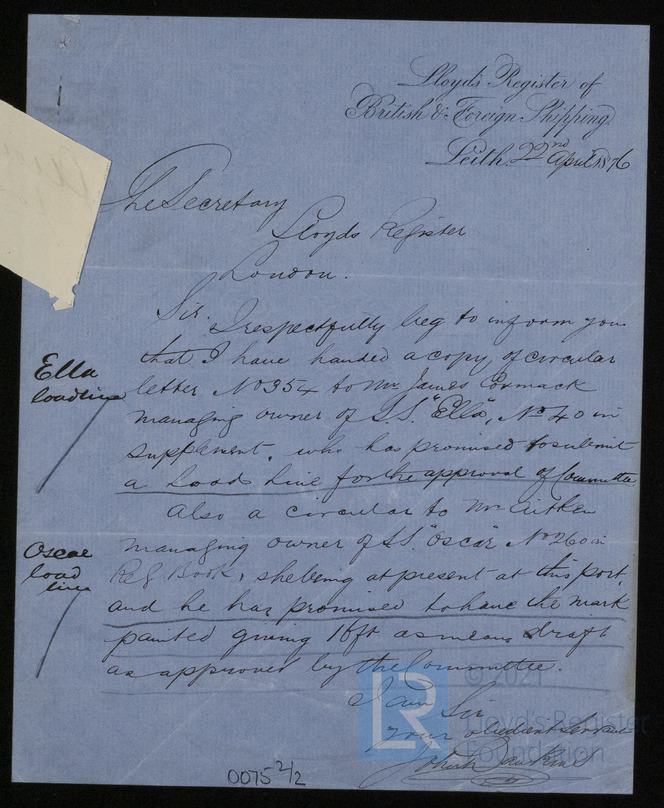 Lloyd's Register of
British & Foreign Shipping,
Leith. 22nd April 1876
The Secretary
Lloyds Register
London.
Sir.
I respectfully beg to inform you
that I have handed a copy of circular
letter No 354 to Mr James Cormack
managing owner of S.S. "Ella", No 40 in
supplement, who has promised to submit
a Load Line for the approval of Committee
Also a circular to Mr Aitken
managing owner of S.S. "Oscar" No 260 in
Reg Book, she being at present at this port,
and he has promised to have the mark
painted giving 16ft as mean draft
as approved by the Committee.
I am Sir
Your obedient Servant
John
Ella
loadline
Oscar
load
line
0075 2/2
LR
© 2021
Lloyd's Register
Foundation